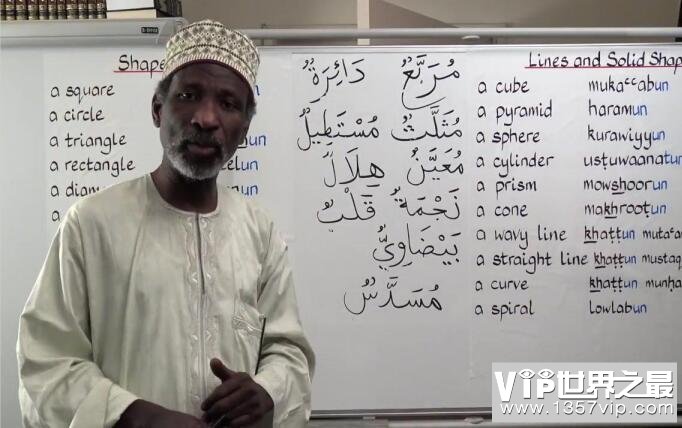 Shape
a square un
a circle
a triangle un
a rectangle elun
a diam un
a
مُرَبَّعٌ دَائِرَةٌ
مُثَلَّثٌ مُسْتَطِيلٌ
مُعَيَّنٌ هِلَالٌ
نَجْمَةٌ قَلْبٌ
بَيْضَاوِيٌّ
مُسَدَّسٌ
Lines and Solid Shap
a cube mukaᶜᶜabun
a pyramid haramun
a sphere kurawiyyun
a cylinder usṭuwaanatun
a prism mowshoorun
a cone makhrooṭun
a wavy line khaṭṭun mutaᶜar
a straight line khaṭṭun mustaq
a curve khaṭṭun munḥa
a spiral lowlabun
VIP世界之最
www.1357vip.com